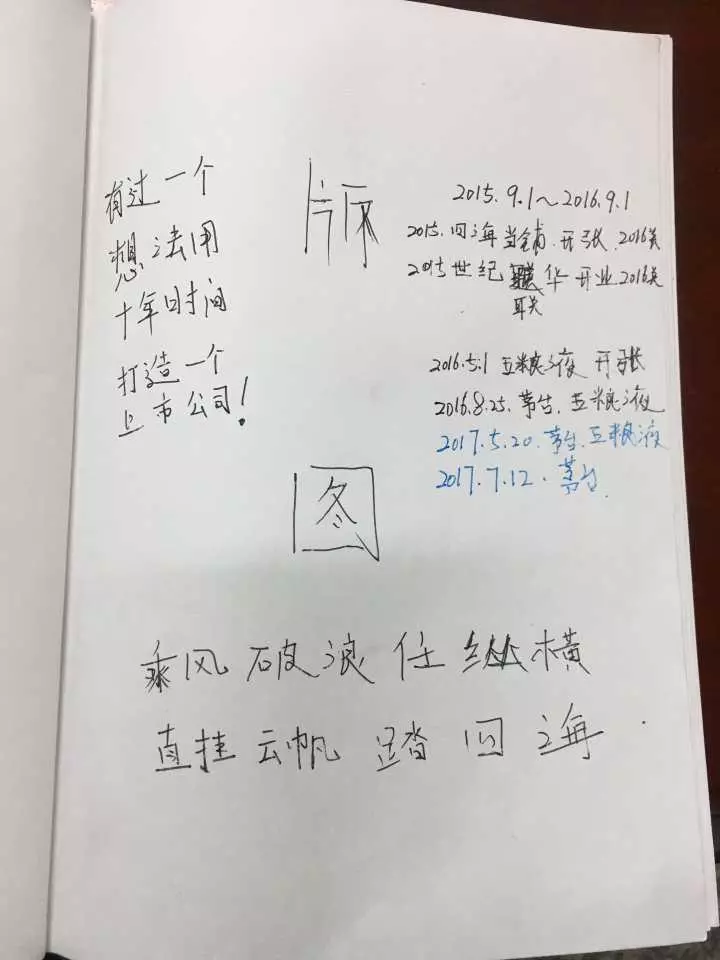 有过一个
想法用
十年时间
打造一个
上市公司!
版
2015.9.1~2016.9.1
2015.四海当铺.开张.2016关
2015世纪联华开业2016关
联
2016.5.1 五粮液开张
2016.8.25.茅台.五粮液
2017.5.20.茅台.五粮液
2017.7.12.茅台
图
乘风破浪任纵横
直挂云帆踏四海.